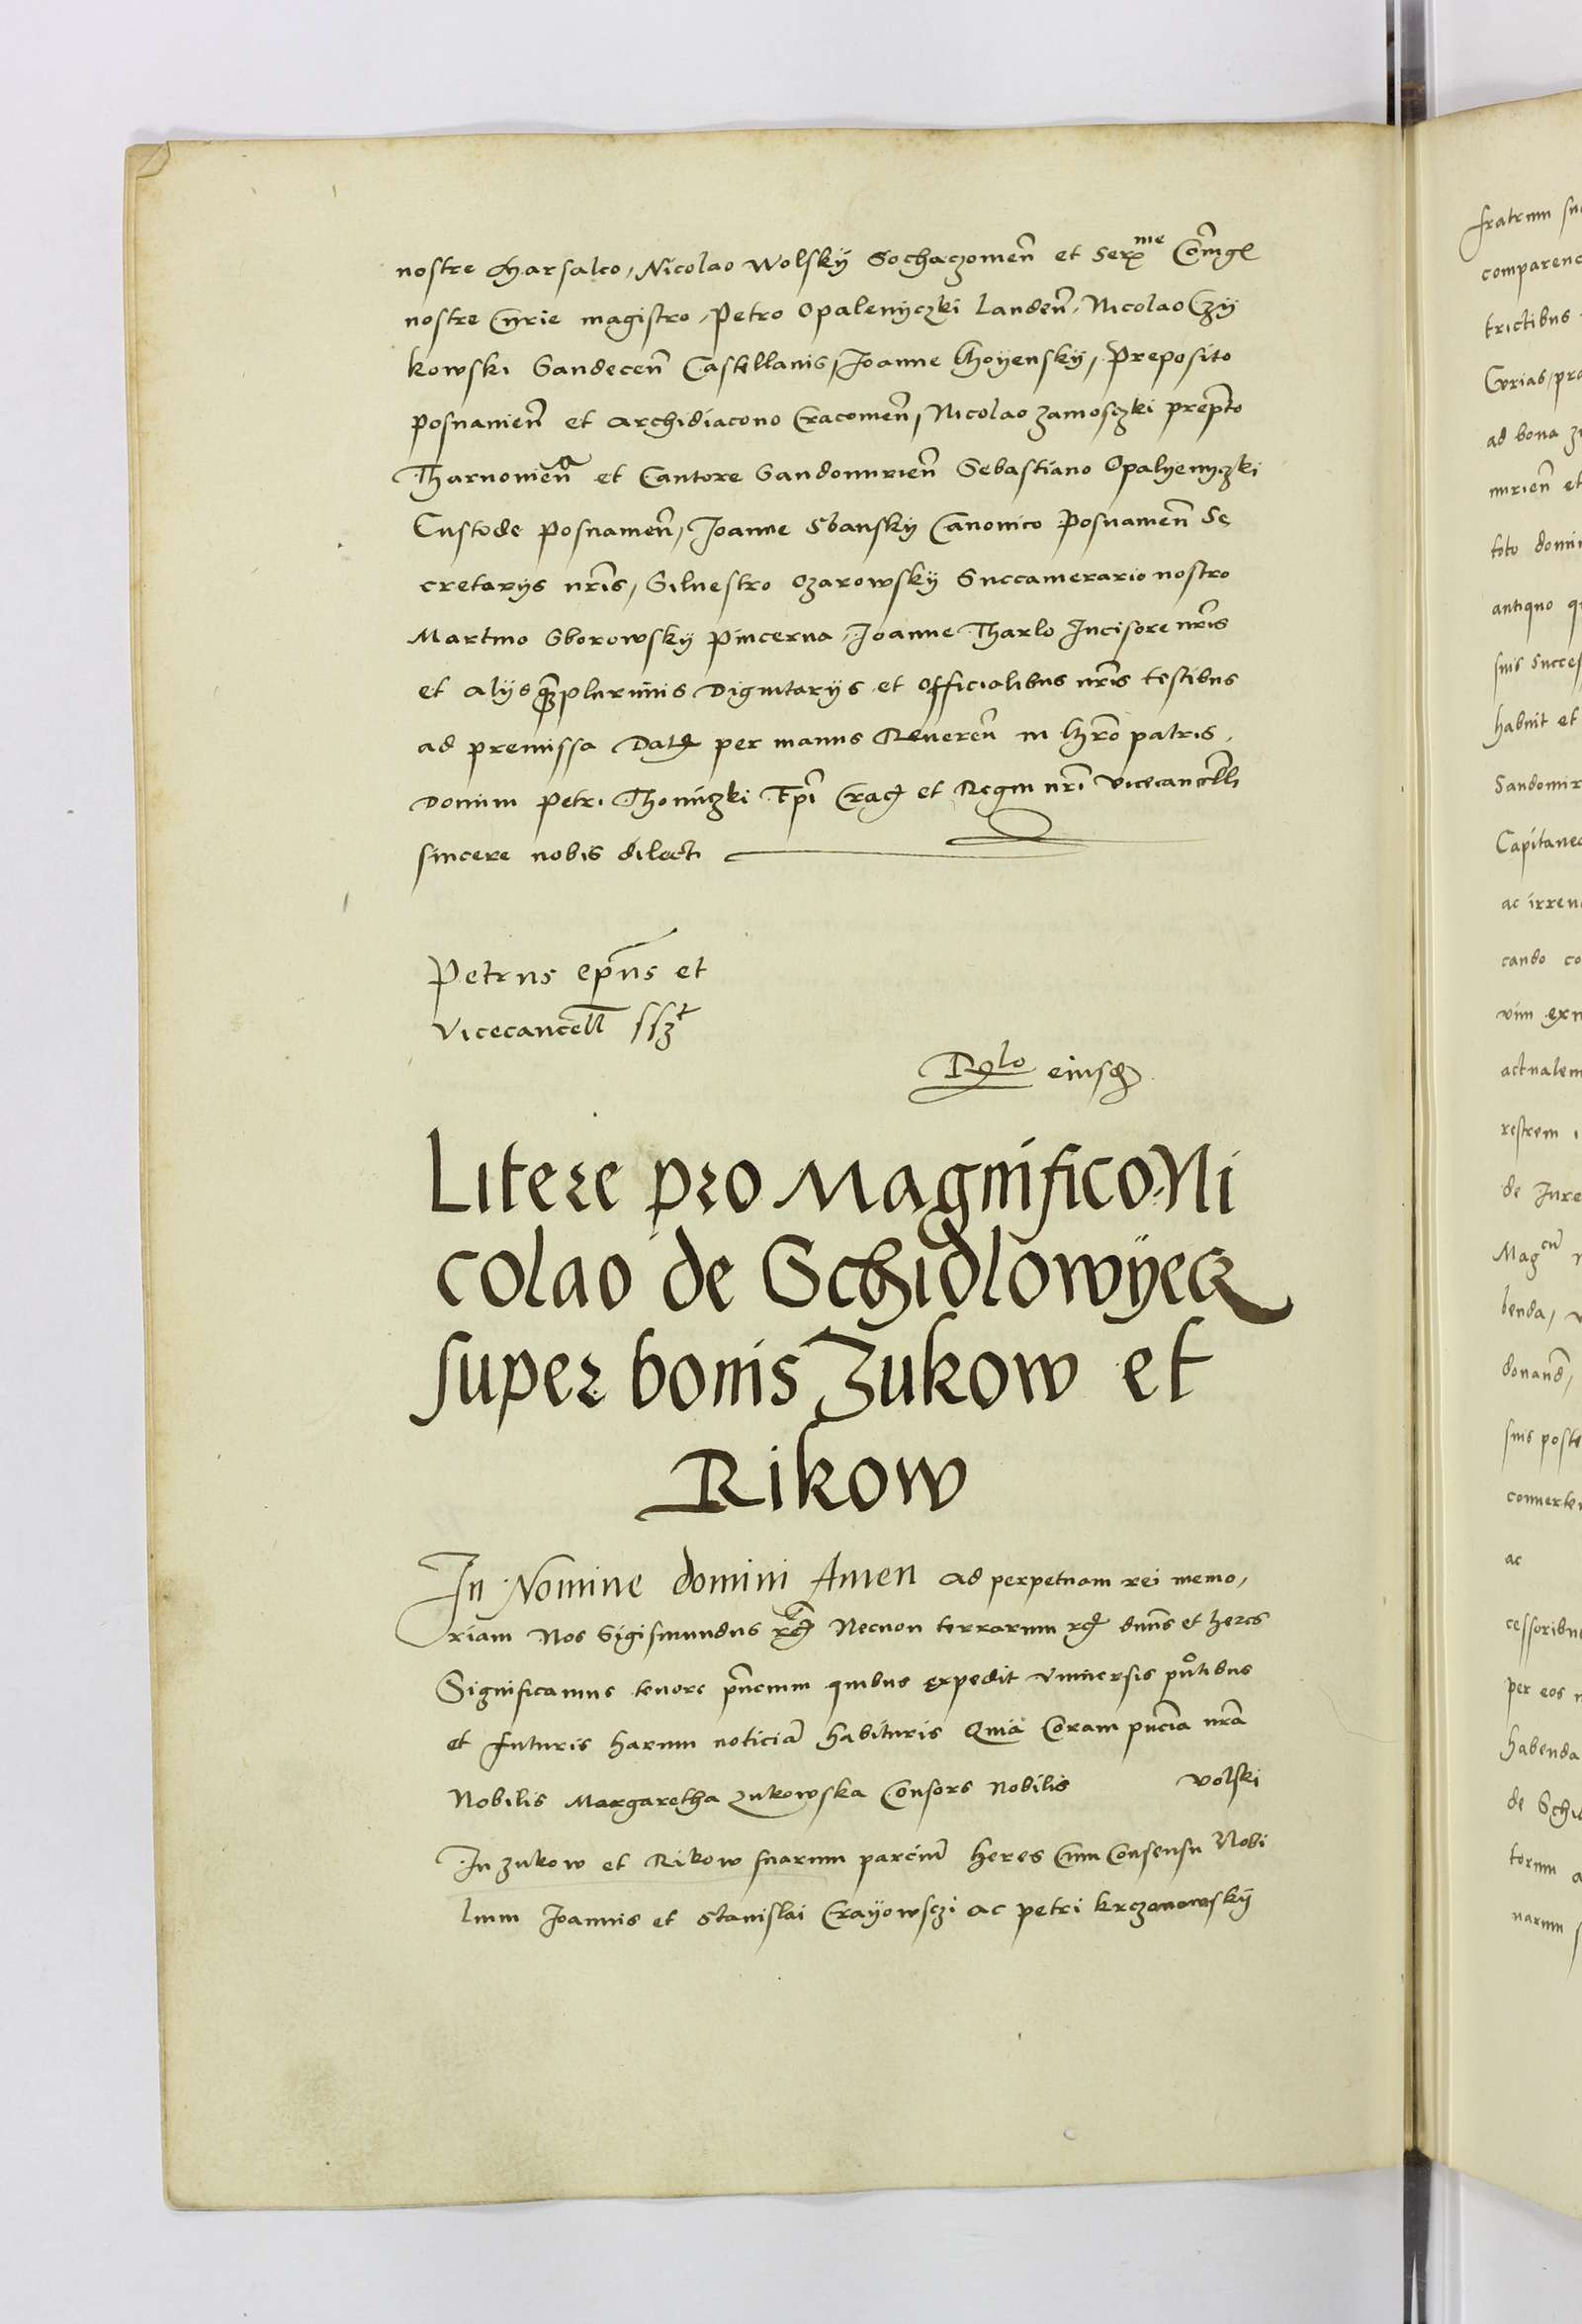 nostre Marsalco, Nicolao Wolskÿ Sochaczouieñ et Serme Coniugl
nostre Curie magistro, Petro Opalenyczki Landeñ, Nicolao Czÿ
kowski Sandeceñ Castellanis, Joanne Choÿenskÿ, Preposito
Posnanieñ et Archidiacono Cracouieñ, Nicolao Zamosczki prepto
Tharnouieñ et Cantore Sandomirieñ Sebastiano Opalÿenyczki
Custode Posnanieñ, Joanne Sbanskÿ Canonico Posnanieñ Se
cretarÿs nris, Siluestro Ozarowskÿ Succamerario nostro
Martino Sborowskÿ Pincerna, Joanne Tharlo Incisore nris
et alÿs qmplurimis Dignitarÿs et Officialibus nris testibus
ad premissa Dat per manus Reueren in Chro patris,
Domini Petri Thomiczki Epi Crac et Regni nri Vicecancelli
sincere nobis dilecti
Petrus epus et
Vicecancell sszt
Rlo eiusd
Litere pro Magnifico Ni
colao de Schidlowÿecz
super bonis Zukow et
Rikow
In Nomine domini Amen ad perpetuam rei memo,
riam Nos Sigismundus rc Necnon terrarum rc dnus et heres
Significamus tenore pncium quibus expedit vniuersis pntibus
et futuris harum noticia habituris Quia Coram pncia nra
Nobilis Margaretha Zukowska Consors Nobilis Volski
In Zukow et Rikow suarum parciu heres Cum Consensu Nobi
lium Joannis et Stanislai Crayowsczi ac Petri Krczonowskÿ
fratrum
comparenc
trictibus
Curias, pro
ad bona
mirieñ et
toto domi
antiquo
suis succes
habuit et
Sandomir
Capitaneo
ac irreuo
cando co
vim
actualem
de Jure
Magcu
benda,
donand,
suis poste
conuerte
ac
cessoribus
per eos
habenda
de Schi
torum
narum